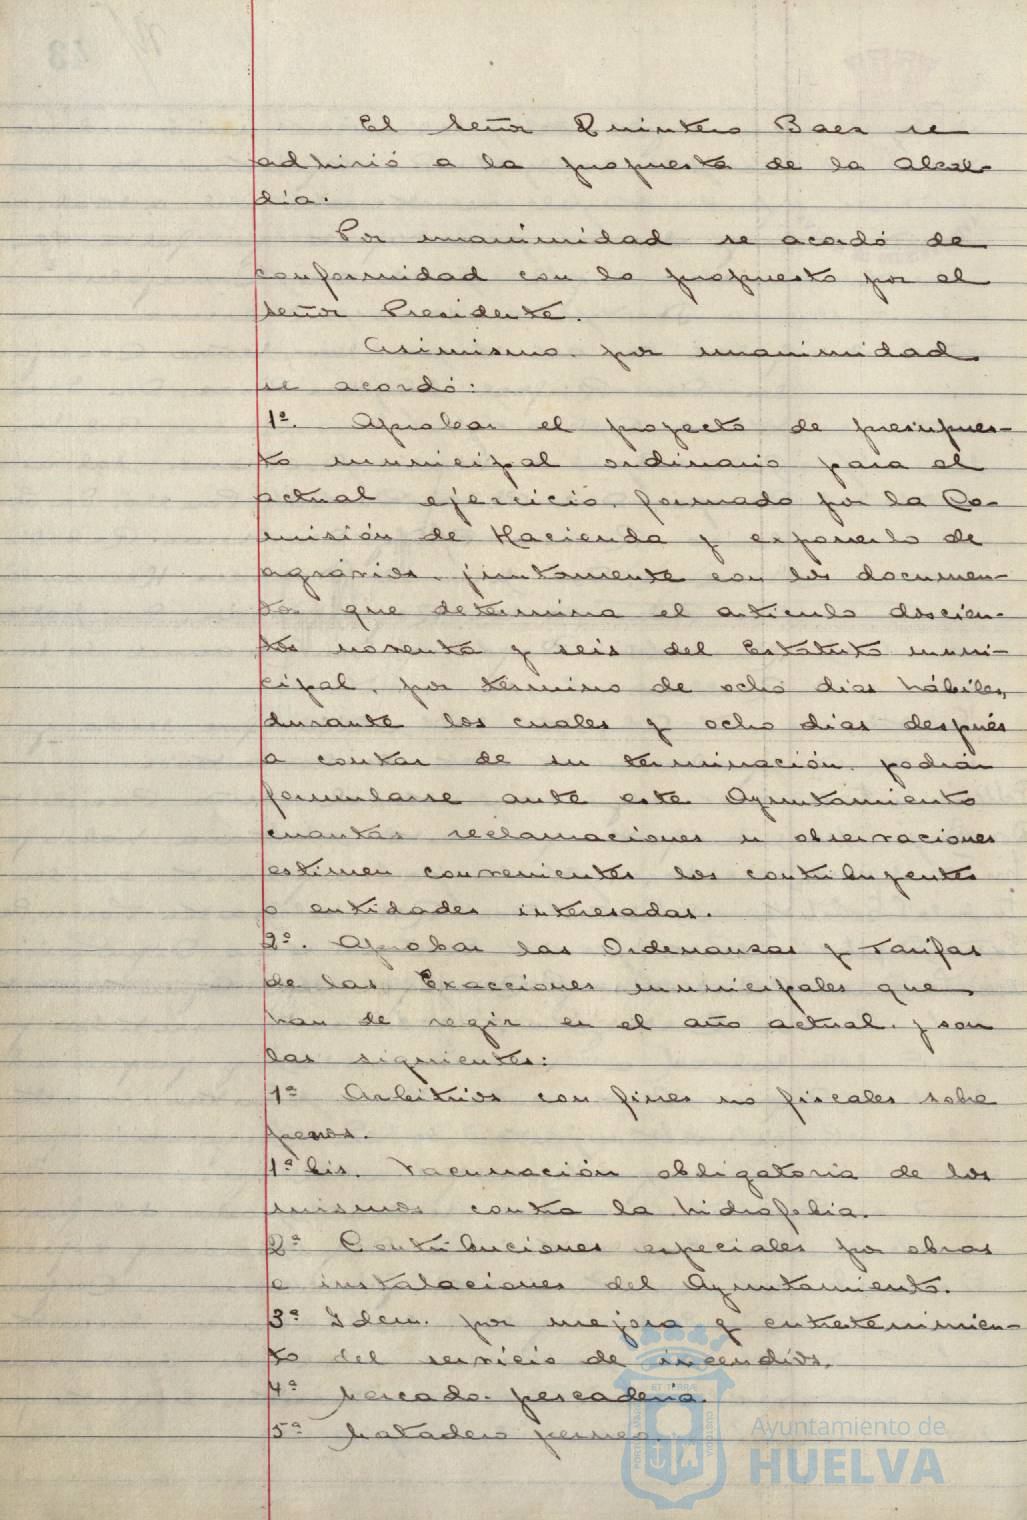 El Señor Quintero Baez se
adhirió a la propuesta de la Alcal-
día.
Por unanimidad se acordó de
conformidad con lo propuesto por el
Señor Presidente.
Asimismo, por unanimidad
se acordó:
1º. Aprobar el proyecto de presupues-
to municipal ordinario para el
actual ejercicio, formado por la Co-
misión de Hacienda y exponerlo de
agravios, juntamente con los documen-
tos que determina el artículo doscien-
tos noventa y seis del Estatuto muni-
cipal, por término de ocho días hábiles,
durante los cuales y ocho días después
a contar de su terminación, podrán
formularse ante este Ayuntamiento
cuantas reclamaciones u observaciones
estimen convenientes los contribuyentes
o entidades interesadas.
2º. Aprobar las Ordenanzas y Tarifas
de las Exacciones municipales que
han de regir en el año actual, y son
las siguientes:
1ª Arbitrios con fines no fiscales sobre
perros.
1ª bis. Vacunación obligatoria de los
mismos contra la hidrofobia.
2ª Contribuciones especiales por obras
o instalaciones del Ayuntamiento.
3ª Idem. por mejora y entretenimien-
to del servicio de incendios.
4ª Mercado. pescadería.
5ª Matadero
Ayuntamiento de
HUELVA